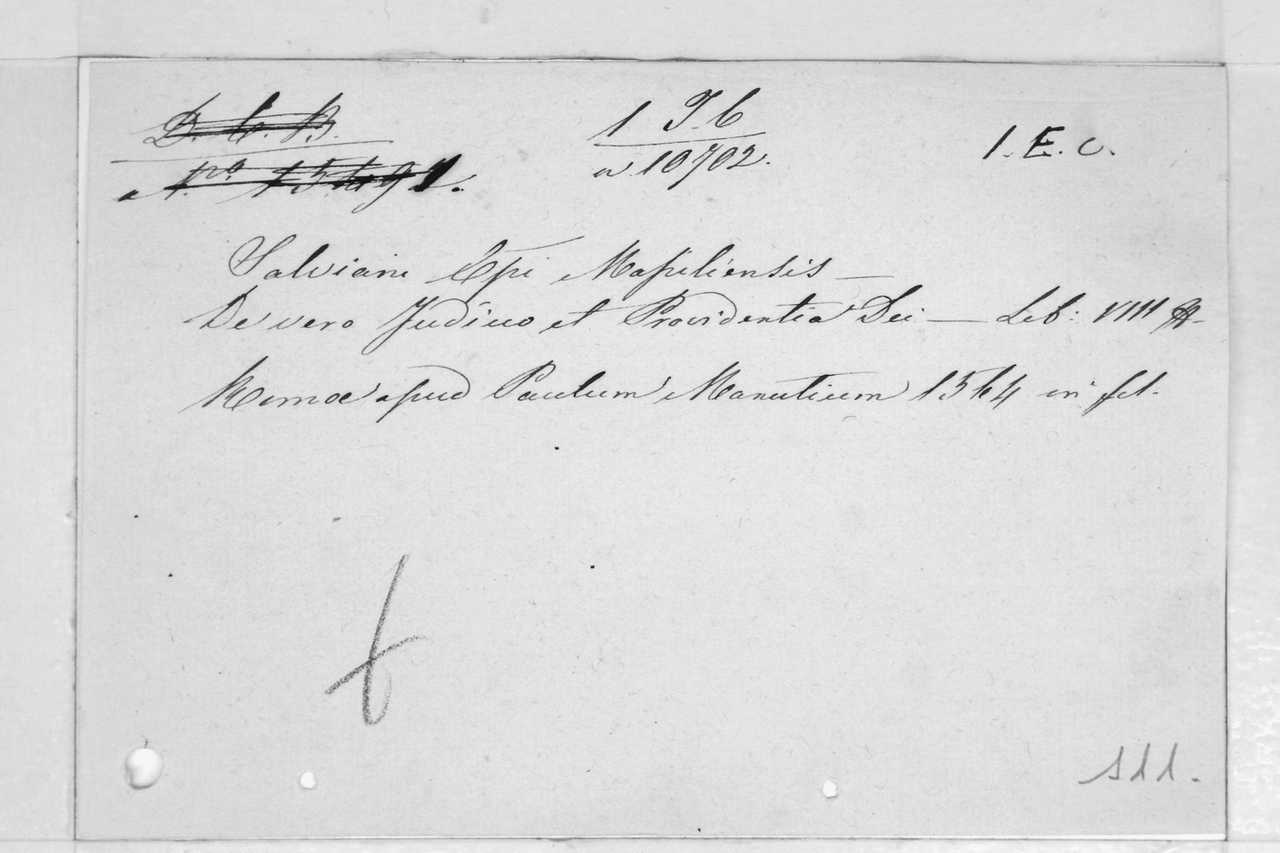 D. C. B. 1 T. 6 1. E. c.
a 10702.
Salviani Epi Massiliensis —
De vero Judicio et Providentia Dei — Lib: VIII
Romae apud Paulum Manutium 1564 in fol.